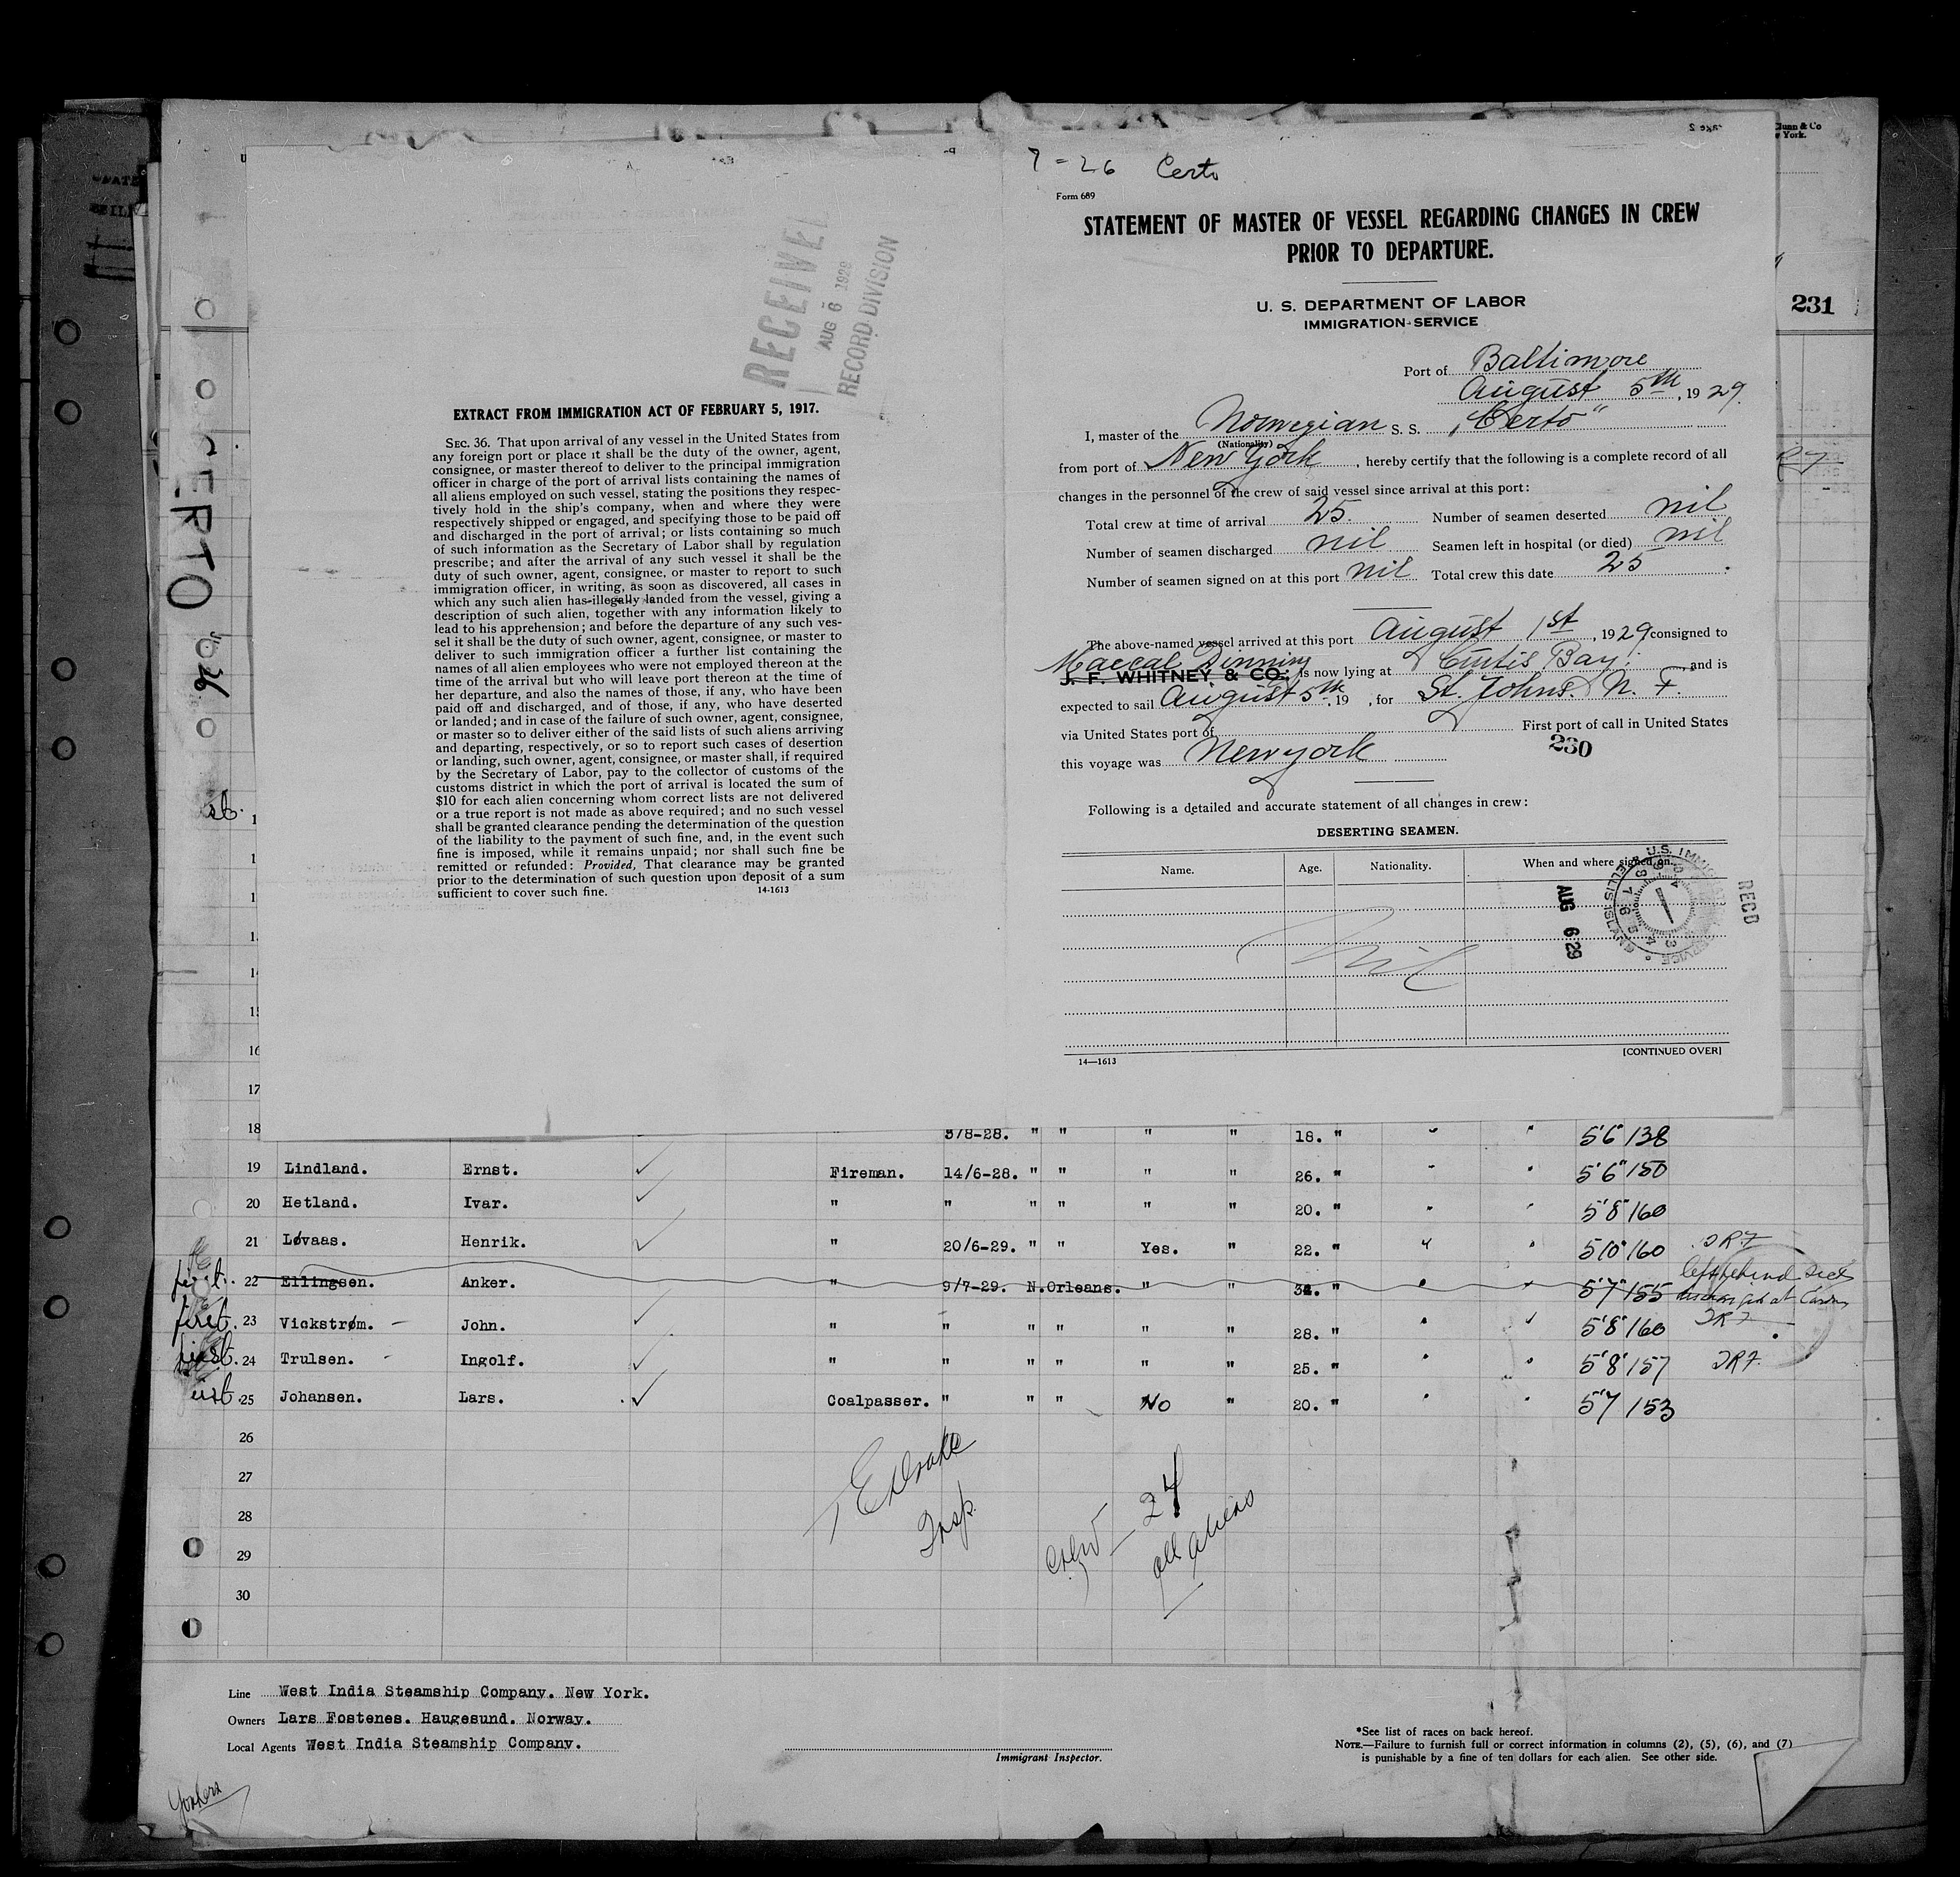 7-26 Certo
Form 689
STATEMENT OF MASTER OF VESSEL REGARDING CHANGES IN CREW
PRIOR TO DEPARTURE.
U. S. DEPARTMENT OF LABOR
IMMIGRATION SERVICE
Port of Baltimore
August 5th, 1929.
I, master of the Norwegian S. S. "Certo"
(Nationality)
from port of New York, hereby certify that the following is a complete record of all
changes in the personnel of the crew of said vessel since arrival at this port:
Total crew at time of arrival 25. Number of seamen deserted nil
Number of seamen discharged nil Seamen left in hospital (or died) nil
Number of seamen signed on at this port nil Total crew this date 25
The above-named vessel arrived at this port August 1st, 1929 consigned to
J. F. WHITNEY & CO. is now lying at Curtis Bay. and is
expected to sail August 5th, 19 , for St. Johns. N. F.
via United States port of First port of call in United States
this voyage was New york
230
Following is a detailed and accurate statement of all changes in crew:
DESERTING SEAMEN.
Name. Age. Nationality. When and where signed on.
nil
14—1613 [CONTINUED OVER]
U.S. IMMIGRATION SERVICE
ELLIS ISLAND
AUG 6 29
RECD
RECEIVED
AUG 6 1929
RECORD DIVISION
EXTRACT FROM IMMIGRATION ACT OF FEBRUARY 5, 1917.
SEC. 36. That upon arrival of any vessel in the United States from
any foreign port or place it shall be the duty of the owner, agent,
consignee, or master thereof to deliver to the principal immigration
officer in charge of the port of arrival lists containing the names of
all aliens employed on such vessel, stating the positions they respec-
tively hold in the ship's company, when and where they were
respectively shipped or engaged, and specifying those to be paid off
and discharged in the port of arrival; or lists containing so much
of such information as the Secretary of Labor shall by regulation
prescribe; and after the arrival of any such vessel it shall be the
duty of such owner, agent, consignee, or master to report to such
immigration officer, in writing, as soon as discovered, all cases in
which any such alien has illegally landed from the vessel, giving a
description of such alien, together with any information likely to
lead to his apprehension; and before the departure of any such ves-
sel it shall be the duty of such owner, agent, consignee, or master to
deliver to such immigration officer a further list containing the
names of all alien employees who were not employed thereon at the
time of the arrival but who will leave port thereon at the time of
her departure, and also the names of those, if any, who have been
paid off and discharged, and of those, if any, who have deserted
or landed; and in case of the failure of such owner, agent, consignee,
or master so to deliver either of the said lists of such aliens arriving
and departing, respectively, or so to report such cases of desertion
or landing, such owner, agent, consignee, or master shall, if required
by the Secretary of Labor, pay to the collector of customs of the
customs district in which the port of arrival is located the sum of
$10 for each alien concerning whom correct lists are not delivered
or a true report is not made as above required; and no such vessel
shall be granted clearance pending the determination of the question
of the liability to the payment of such fine, and, in the event such
fine is imposed, while it remains unpaid; nor shall such fine be
remitted or refunded: Provided, That clearance may be granted
prior to the determination of such question upon deposit of a sum
sufficient to cover such fine. 14-1613
CERTO
231
18 5/8-28. " " " " 18. " " " 5'6" 138
19 Lindland. Ernst. Fireman. 14/6-28. " " " " 26. " " " 5'6" 150
20 Hetland. Ivar. " " " " " " 20. " " " 5'8" 160
21 Løvaas. Henrik. " 20/6-29. " " Yes. " 22. " " " 5'10" 160
22 Ellingsen. Anker. " 9/7-29. N.Orleans. " " 34. " " " 5'7" 155 left behind
23 Vickstrøm. John. " " " " " " 28. " " " 5'8" 160
24 Trulsen. Ingolf. " " " " " " 25. " " " 5'8" 157
25 Johansen. Lars. Coalpasser. " " " No " 20. " " " 5'7 153
26
27
28
29
30
E Drake
Insp.
Crew - 24
all aliens
Line West India Steamship Company. New York.
Owners Lars Fostenes. Haugesund. Norway.
Local Agents West India Steamship Company.
Immigrant Inspector.
*See list of races on back hereof.
NOTE.—Failure to furnish full or correct information in columns (2), (5), (6), and (7)
is punishable by a fine of ten dollars for each alien. See other side.
Yonkers